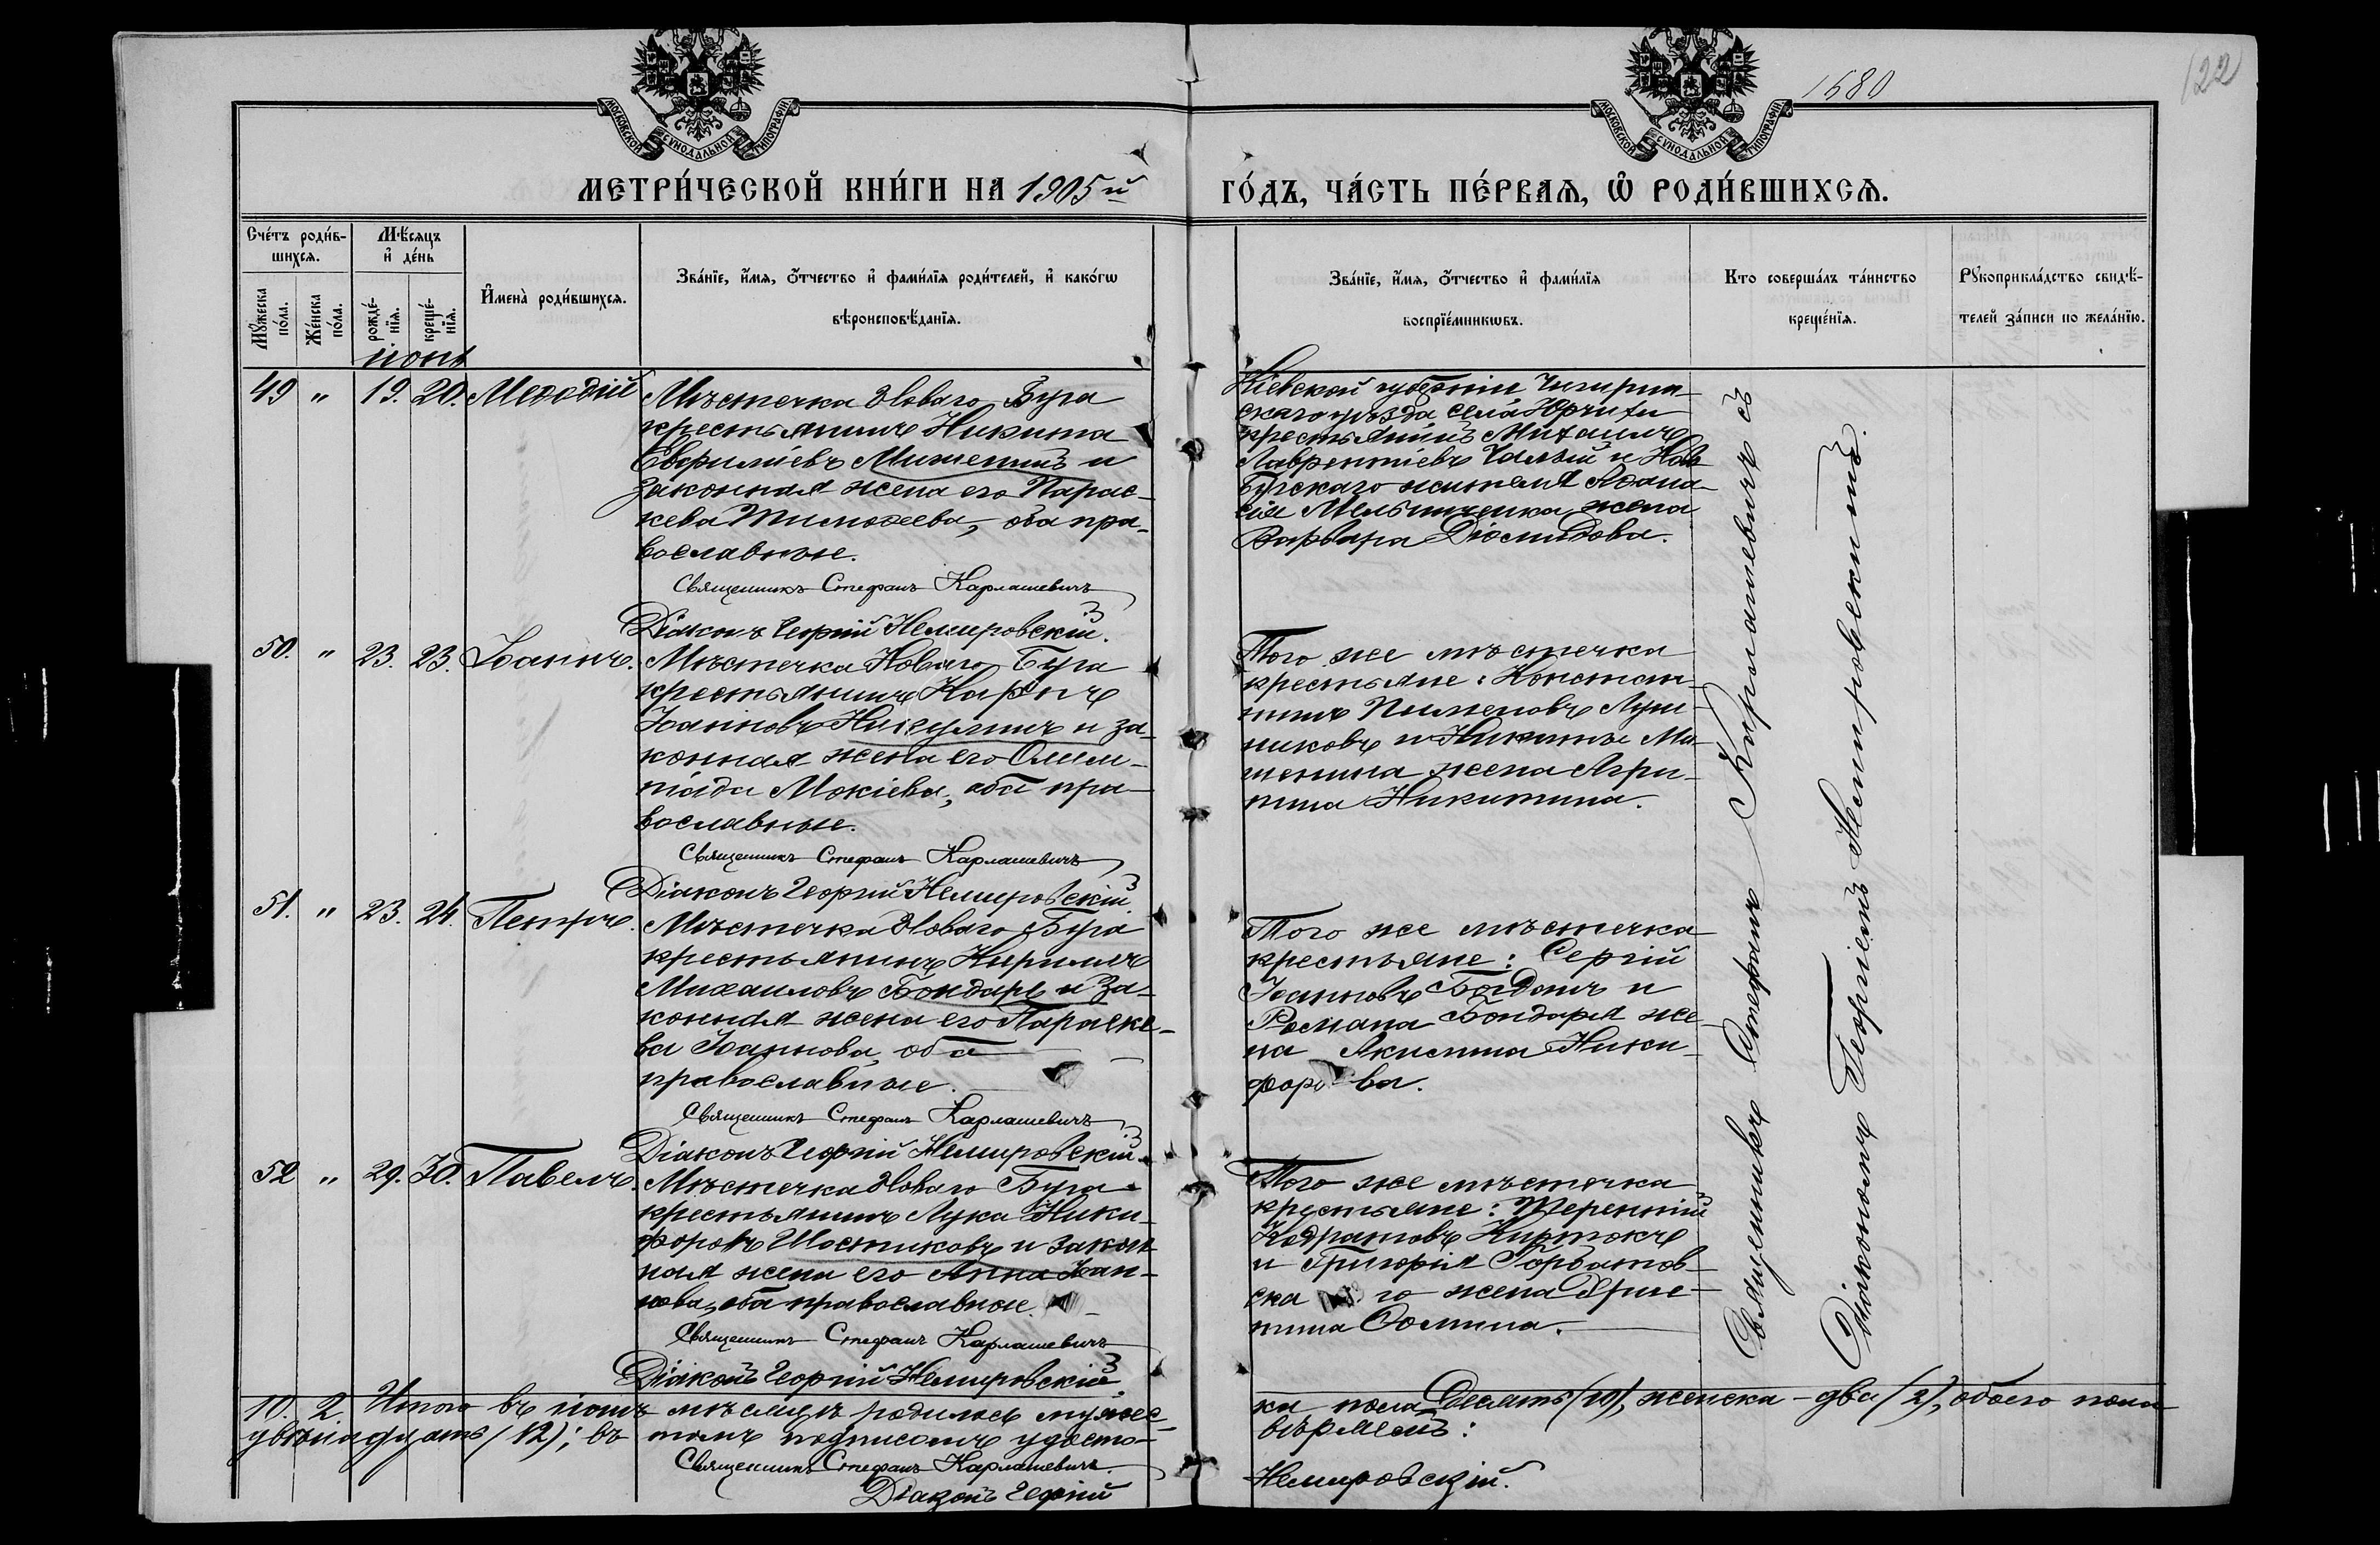 1680
122
МОСКОВСКОЙ СѴНОДАЛЬНОЙ ТИПОГРАФІИ
МОСКОВСКОЙ СѴНОДАЛЬНОЙ ТИПОГРАФІИ
МЕТРИ́ЧЕСКОЙ КНИ́ГИ НА 1905й
ГО́ДЪ, ЧА́СТЬ ПЕ́РВАЯ, Ѡ҆ РОДИ́ВШИХСѦ.
Сче́тъ роди́в-
шихсѧ.
Мꙋ́жеска по́ла.
Же́нска по́ла.
Мѣ́сяцъ
и҆ де́нь
рожде́-
нїѧ.
креще́-
нїѧ.
И҆мена̀ роди́вшихсѧ.
Зва́нїе, и҆́мя, ѻ҆́тчество и҆ фами́лїя роди́телей, и҆ како́гѡ
вѣроисповѣ́данїѧ.
Зва́нїе, и҆́мя, ѻ҆́тчество и҆ фами́лїя
воспрїе́мникѡвъ.
Кто соверша́лъ та́инство
креще́нїѧ.
Рꙋкоприкла́дство свидѣ́-
телей за́писи по жела́нїю.
іюнь
49 " 19. 20. Меѳодій
Мѣстечка Новаго Буга
крестьянинъ Никита
Евфиміевъ Мишенинъ и
законная жена его Парас-
кева Тимоѳеева, оба пра-
вославные.
Священникъ Стефанъ Карлашевичъ
Діаконъ Георгій Немировскій.
Кіевской губерніи, Чигирин-
скаго уѣзда села Юрчихи
крестьянинъ Михаилъ
Лаврентіевъ Чалый и Ново
Бугскаго жителя Аѳана-
сія Мельниченка жена
Варвара Діомидова.
50. " 23. 23. Іоаннъ.
Мѣстечка Новаго Буга
крестьянинъ Карпъ
Іоанновъ Никулинъ и за-
конная жена его Олим-
піада Мокіева, оба пра-
вославные.
Священникъ Стефанъ Карлашевичъ
Діаконъ Георгій Немировскій
Того же мѣстечка
крестьяне: Констан-
тинъ Пименовъ Луш-
никовъ и Никиты Ми-
шенина жена Агри-
пина Никитина.
51. " 23. 24. Петръ.
Мѣстечка Новаго Буга
крестьянинъ Кириллъ
Михаиловъ Бондарь и за-
конная жена его Параске-
ва Іоаннова, оба
православные.
Священникъ Стефанъ Карлашевичъ
Діаконъ Георгій Немировскій
Того же мѣстечка
крестьяне: Сергій
Іоанновъ Богданъ и
Романа Бондаря же-
на Акилина Ники-
форова.
52 " 29. 30. Павелъ.
Мѣстечка Новаго Буга
крестьянинъ Лука Ники-
форовъ Шостиковъ и закон-
ная жена его Анна Іоан-
нова, оба православные.
Священникъ Стефанъ Карлашевичъ
Діаконъ Георгій Немировскій
Того же мѣстечка
крестьяне: Терентій
Кодратовъ Киртокъ
и Григорія Горбатов-
скаго жена
Ѳомина.
Священникъ Стефанъ Карлашевичъ съ
Діакономъ Георгіемъ Немировскимъ.
10. 2. Итого въ іюнѣ мѣсяцѣ родилось мужес-
ка пола десять (10), женска - два (2), обоего пола
двѣнадцать (12); въ томъ подписомъ удосто-
вѣряемъ:
Священникъ Стефанъ Карлашевичъ
Діаконъ Георгій
Немировскій.